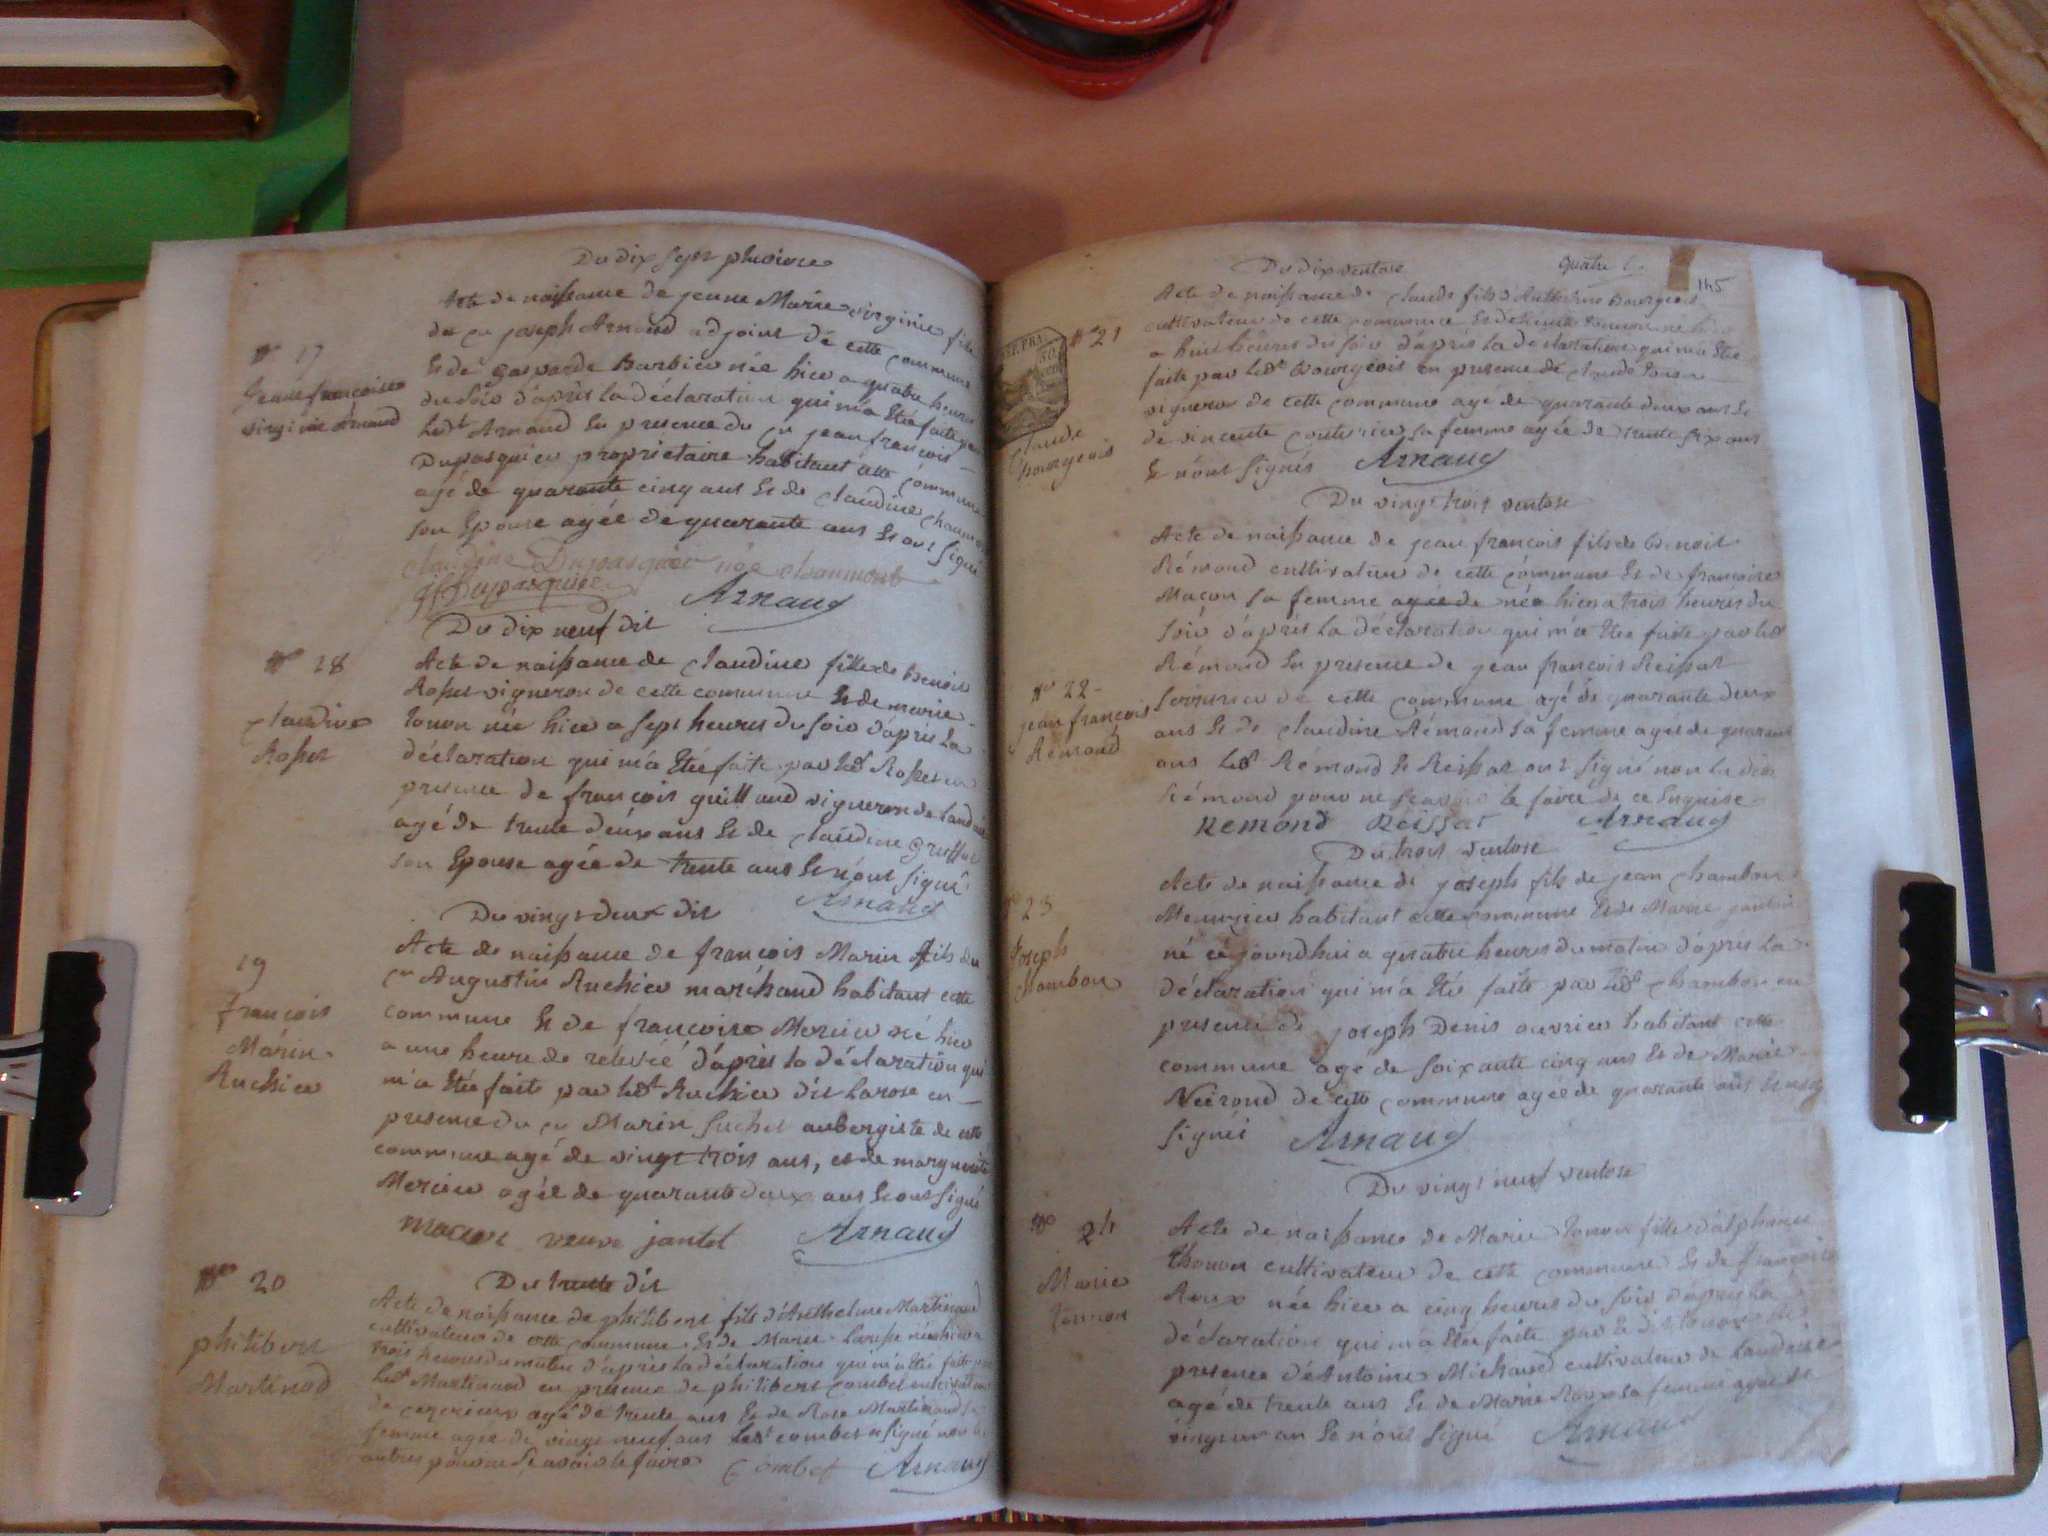 Du dix sept pluviose
N° 17
Jeanne françoise
virginie Arnaud
Acte de naissance de jeune Marie virginie fille
du cn joseph Arnaud adjoint de cette commune
Et de gasparde Barbier née hier a quatre heures
du soir d'après la déclaration qui m'a Eté faite par
ledt Arnaud En presence du cn jean françois
Dupasquier propriétaire habitant cette commune
agé de quarante cinq ans Et de claudine chaumont
son Epouse agée de quarante ans Et ont signé
claudine Dupasquier née chaumont
jf Dupasquier Arnaud
Du dix neuf dit
N° 18
claudine
Rosset
Acte de naissance de claudine fille de benoit
Rosset vigneron de cette commune Et de marie
tonon née hier a sept heures du soir d'après la
déclaration qui m'a Eté faite par ledt Rosset en
presence de françois guilland vigneron de
agé de trente deux ans Et de claudine
son Epouse agée de trente ans Et n'ont signé
Arnaud
Du vingt deux dit
19
françois
Marin
Ruchier
Acte de naissance de françois Marin fils du
cn Augustin Ruchier marchand habitant cette
commune Et de françoise Mercier né hier
a une heure de relevée d'après la déclaration qui
m'a Eté faite par ledt Ruchier dit Larose en
presence du cn Marin suchet aubergiste de cette
commune agé de vingt trois ans, et de marguerite
Mercier agée de quarante deux ans Et ont signé
veuve jantet Arnaud
Du trente dit
N° 20
philibert
Martinod
Acte de naissance de philibert fils d'Anthelme Martinaud
cultivateur de cette commune Et de Marie né hier a
trois heures du matin d'après la déclaration qui m'a Eté faite par
ledt Martinaud en presence de philibert combet cultivateur
de ceyzerieux agé de trente ans Et de Rose Martinaud sa
femme agée de vingt neuf ans ledt combet a signé non les
autres pour ne sçavoir le faire combet Arnaud
Du dix ventose
quatre
145
RÉP. FRA.
N° 21
Claude
bourgeois
Acte de naissance de claude fils d'Anthelme Bourgeois
cultivateur de cette commune Et de tonon né hier
a huit heures du soir d'après la declaration qui m'a Eté
faite par ledt Bourgeois en presence de claude
vigneron de cette commune agé de quarante deux ans Et
de vincente sa femme agée de trente six ans
Et n'ont signés Arnaud
Du vingt trois ventose
N° 22
jean françois
Rémond
Acte de naissance de jean françois fils de benoit
Rémond cultivateur de cette commune Et de françoise
Maçon sa femme agée de né hier a trois heures du
soir d'après la déclaration qui m'a Eté faite par ledt
Rémond En presence de jean françois Reissat
serrurier de cette commune agé de quarante deux
ans Et de claudine Rémond sa femme agée de quarante
ans ledt Rémond Et Reissat ont signé non la dite
Rémond pour ne sçavoir le faire de ce Enquise
Remond Reissat Arnaud
Du trois ventose
N° 23
Joseph
Chambon
Acte de naissance de joseph fils de jean chambon
Menuisier habitant cette commune Et de Marie
né ce jourd'hui a quatre heures du matin d'après la
déclaration qui m'a Eté faite par ledt chambon en
presence de joseph Denis ouvrier habitant cette
commune agé de soixante cinq ans Et de Marie
Neirond de cette commune agée de quarante ans Et n'ont
signés Arnaud
Du vingt neuf ventose
N° 24
Marie
tonnon
Acte de naissance de Marie tonon fille d'alphonse
thonon cultivateur de cette commune Et de françoise
Roux née hier a cinq heures du soir d'après la
déclaration qui m'a Eté faite par le dit tonon En
presence d'Antoine Michaud cultivateur de
agé de trente ans Et de Marie Roux sa femme agée de
vingt un an Et n'ont signé Arnaud